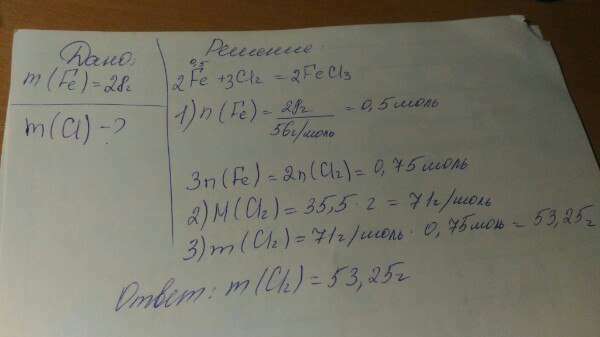 Дано:
m(Fe)=28г
m(Cl) - ?
Решение:
0,5
2Fe + 3Cl₂ = 2FeCl₃
1) n(Fe) = 28г / 56г/моль = 0,5 моль
3n(Fe) = 2n(Cl₂) = 0,75 моль
2) M(Cl₂) = 35,5 · 2 = 71г/моль
3) m(Cl₂) = 71г/моль · 0,75моль = 53,25г
Ответ: m(Cl₂) = 53,25г